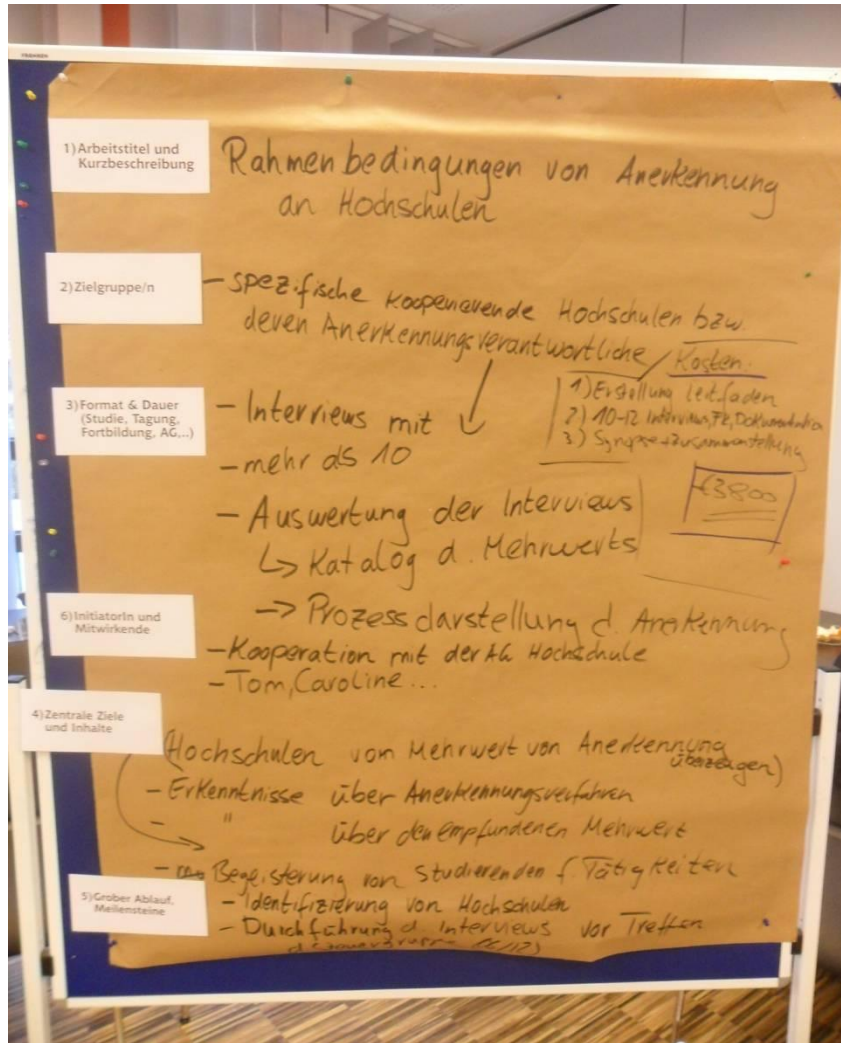 1) Arbeitstitel und
Kurzbeschreibung
Rahmenbedingungen von Anerkennung
an Hochschulen
2) Zielgruppe/n
- spezifische kooperierende Hochschulen bzw.
deren Anerkennungsverantwortliche
Kosten:
1) Erstellung Leitfaden
2) 10-12 Interviews, Dokumentation
3) Synopse + Zusammenstellung
€3800
3) Format & Dauer
(Studie, Tagung,
Fortbildung, AG,...)
- Interviews mit
- mehr als 10
- Auswertung der Interviews
↳ Katalog d. Mehrwerts
-> Prozessdarstellung d. Anerkennung
6) InitiatorIn und
Mitwirkende
- Kooperation mit der AG Hochschule
- Tom, Caroline...
4) Zentrale Ziele
und Inhalte
Hochschulen vom Mehrwert von Anerkennung
überzeugen)
- Erkenntnisse über Anerkennungsverfahren
- " über den empfundenen Mehrwert
- Begeisterung von Studierenden f Tätigkeiten
5) Grober Ablauf,
Meilensteine
- Identifizierung von Hochschulen
- Durchführung d. Interviews vor Treffen